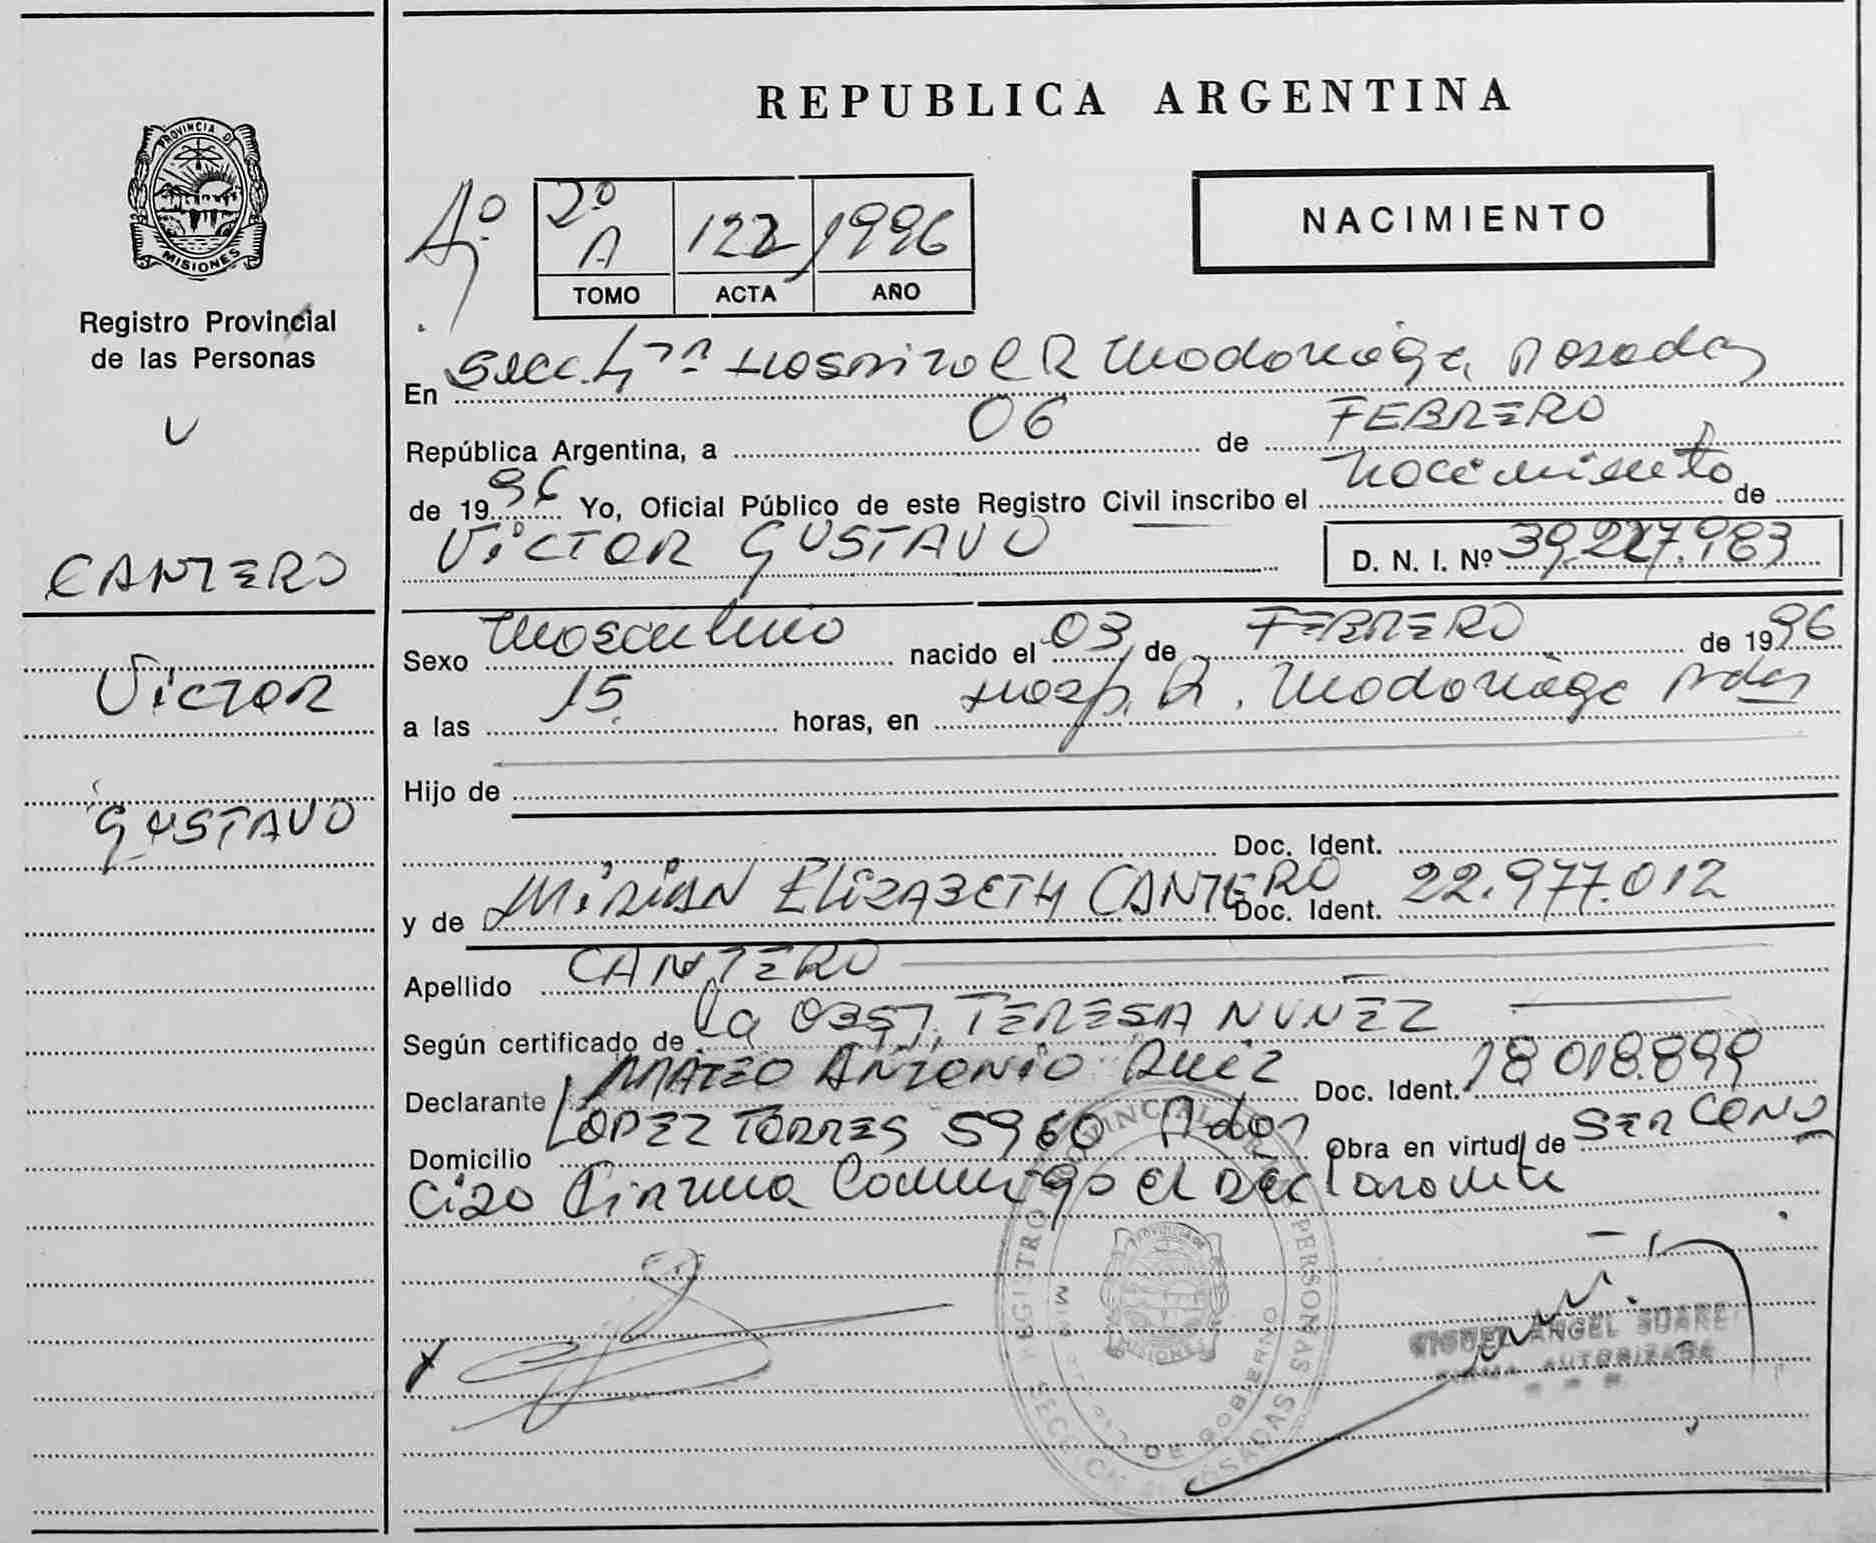 PROVINCIA DE
MISIONES
Registro Provincial
de las Personas
CANTERO
Victor
GUSTAVO
REPUBLICA ARGENTINA
2º
A 122 1996
TOMO ACTA AÑO
NACIMIENTO
En Secc. Hospital R Madariaga, Posadas
República Argentina, a 06 de FEBRERO
de 1996 Yo, Oficial Público de este Registro Civil inscribo el nacimiento de
VICTOR GUSTAVO D. N. I. Nº 39.227.983
Sexo masculino nacido el 03 de FEBRERO de 1996
a las 15 horas, en Hosp. R. Madariaga Pdas
Hijo de
Doc. Ident.
y de MIRIAN ELIZABETH CANTERO Doc. Ident. 22.977.012
Apellido CANTERO
Según certificado de La OBST, TERESA NUNEZ
Declarante MATEO ANTONIO Ruiz Doc. Ident. 18 018.899
Domicilio LOPEZ TORRES 5960 Pdas Obra en virtud de SER CONO
Cido Firma Conmigo el Declarante
REGISTRO PROVINCIAL PERSONAS
DE GOBIERNO
PROVINCIA DE
MISIONES
MIGUEL ANGEL SUAREZ
FIRMA AUTORIZADA